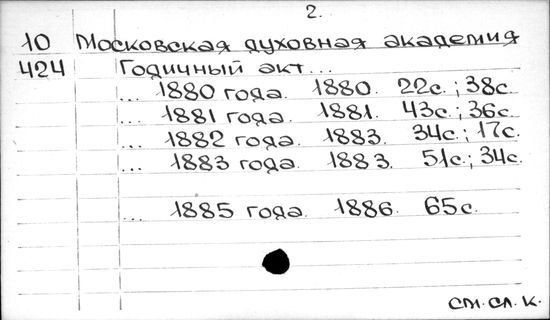 2.
10 Московская духовная академия
424 Годичный акт...
... 1880 года. 1880. 22с.; 38с.
... 1881 года. 1881. 43с.; 36с.
... 1882 года. 1883. 34с.; 17с.
... 1883 года. 1883. 51с.; 34с.
... 1885 года. 1886. 65с.
см. сл. к.